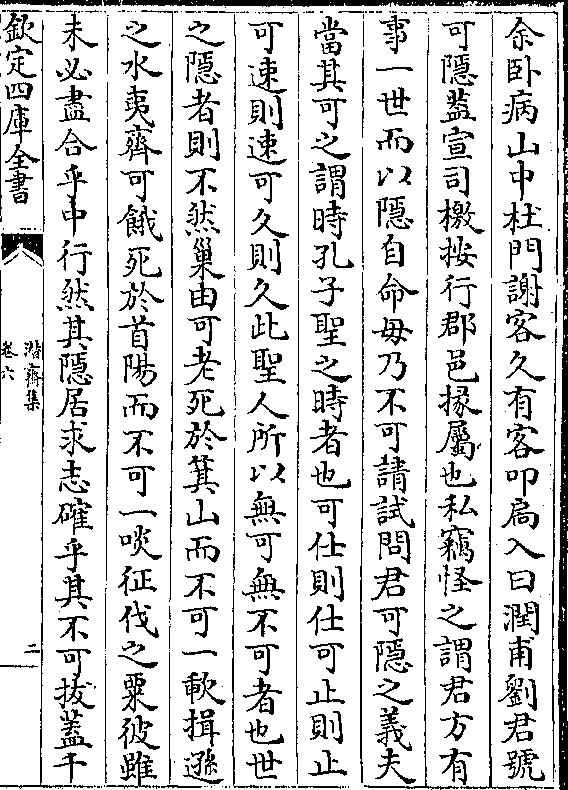 余卧病山中杜門謝客久有客叩扄入曰潤甫劉君號
可隠葢宣司檄按行郡邑掾屬也私竊怪之謂君方有
事一世而以隠自命毋乃不可請試問君可隠之義夫
當其可之謂時孔子聖之時者也可仕則仕可止則止
可速則速可久則久此聖人所以無可無不可者也世
之隠者則不然巢由可老死於箕山而不可一歃揖遜
之水夷齊可餓死於首陽而不可一啖征伐之粟彼雖
未必盡合乎中行然其隠居求志確乎其不可拔葢千
欽定四庫全書
潛齋集
卷六
二